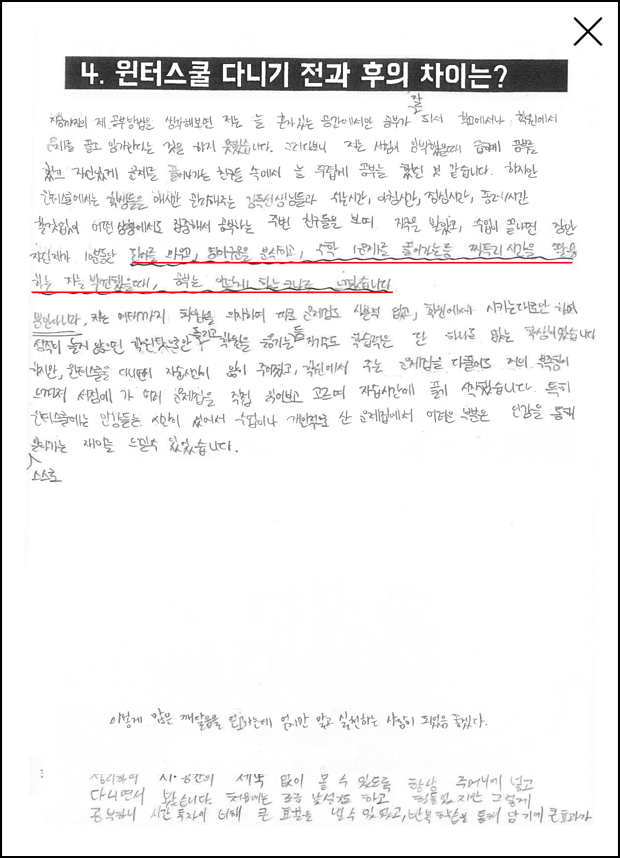 4. 윈터스쿨 다니기 전과 후의 차이는?
잘
지금까지의 제 공부방법을 생각해보면 저는 늘 혼자있는 공간에서만 공부가 되서 학교에서나 학원에서
문제를 풀고 암기한다는 것을 하지 못했습니다. 그러다보니 저는 시험이 임박했을때 급하게 공부를
했고 자신있게 문제를 풀어나가는 친구들 속에서 늘 무겁게 공부를 했던 것 같습니다. 하지만
윈터스쿨에서는 학생들을 매시간 관리해주는 감독선생님들과 쉬는시간, 아침시간, 점심시간, 등하원시간
할것없이 어떤 상황에서도 집중해서 공부하는 주변 친구들을 보며 자극을 받았고, 수업이 끝나면 잠깐
자던 제가 10분동안 단어를 외우고, 영어구문을 분석하고, 수학 1문제를 풀어가는등 짜투리 시간을 활용
하는 저를 발견했을때, 공부는 이렇게 하는 거구나를 느꼈습니다
뿐만아니라, 저는 여태까지 학원을 의지하며 따로 문제집도 살 생각 없고, 학원에서 시키는대로만 하며
성적이 늘지 않으면 학원탓으로만 돌리고 학원을 옮기는 등 자기주도 학습력은 단 하나도 없는 학생이었습니다
하지만, 윈터스쿨을 다니면서 자습시간이 많이 주어졌고, 학원에서 주는 문제집을 다풀어도 저의 부족함이
느껴져 서점에 가 여러 문제집을 직접 읽어보고 고르며 자습시간에 풀기 시작했습니다. 특히
윈터스쿨에는 인강듣는 시간이 있어서 수업이나 개인적으로 산 문제집에서 어려운 부분은 인강을 통해
알아가는 재미를 느낄수 있었습니다.
스스로
이렇게 많은 깨달음을 얻고가는데 잊지만 말고 실천하는 사람이 되었음 좋겠다.
정리하여 시·공간의 제약 없이 볼 수 있도록 항상 주머니에 넣고
다니면서 봤습니다. 처음에는 조금 낯설기도 하고 힘들었지만 그렇게
공부하니 시간 투자에 비해 큰 효율을 낼수 있었고, 반복 학습을 통해 암기에 큰효과가